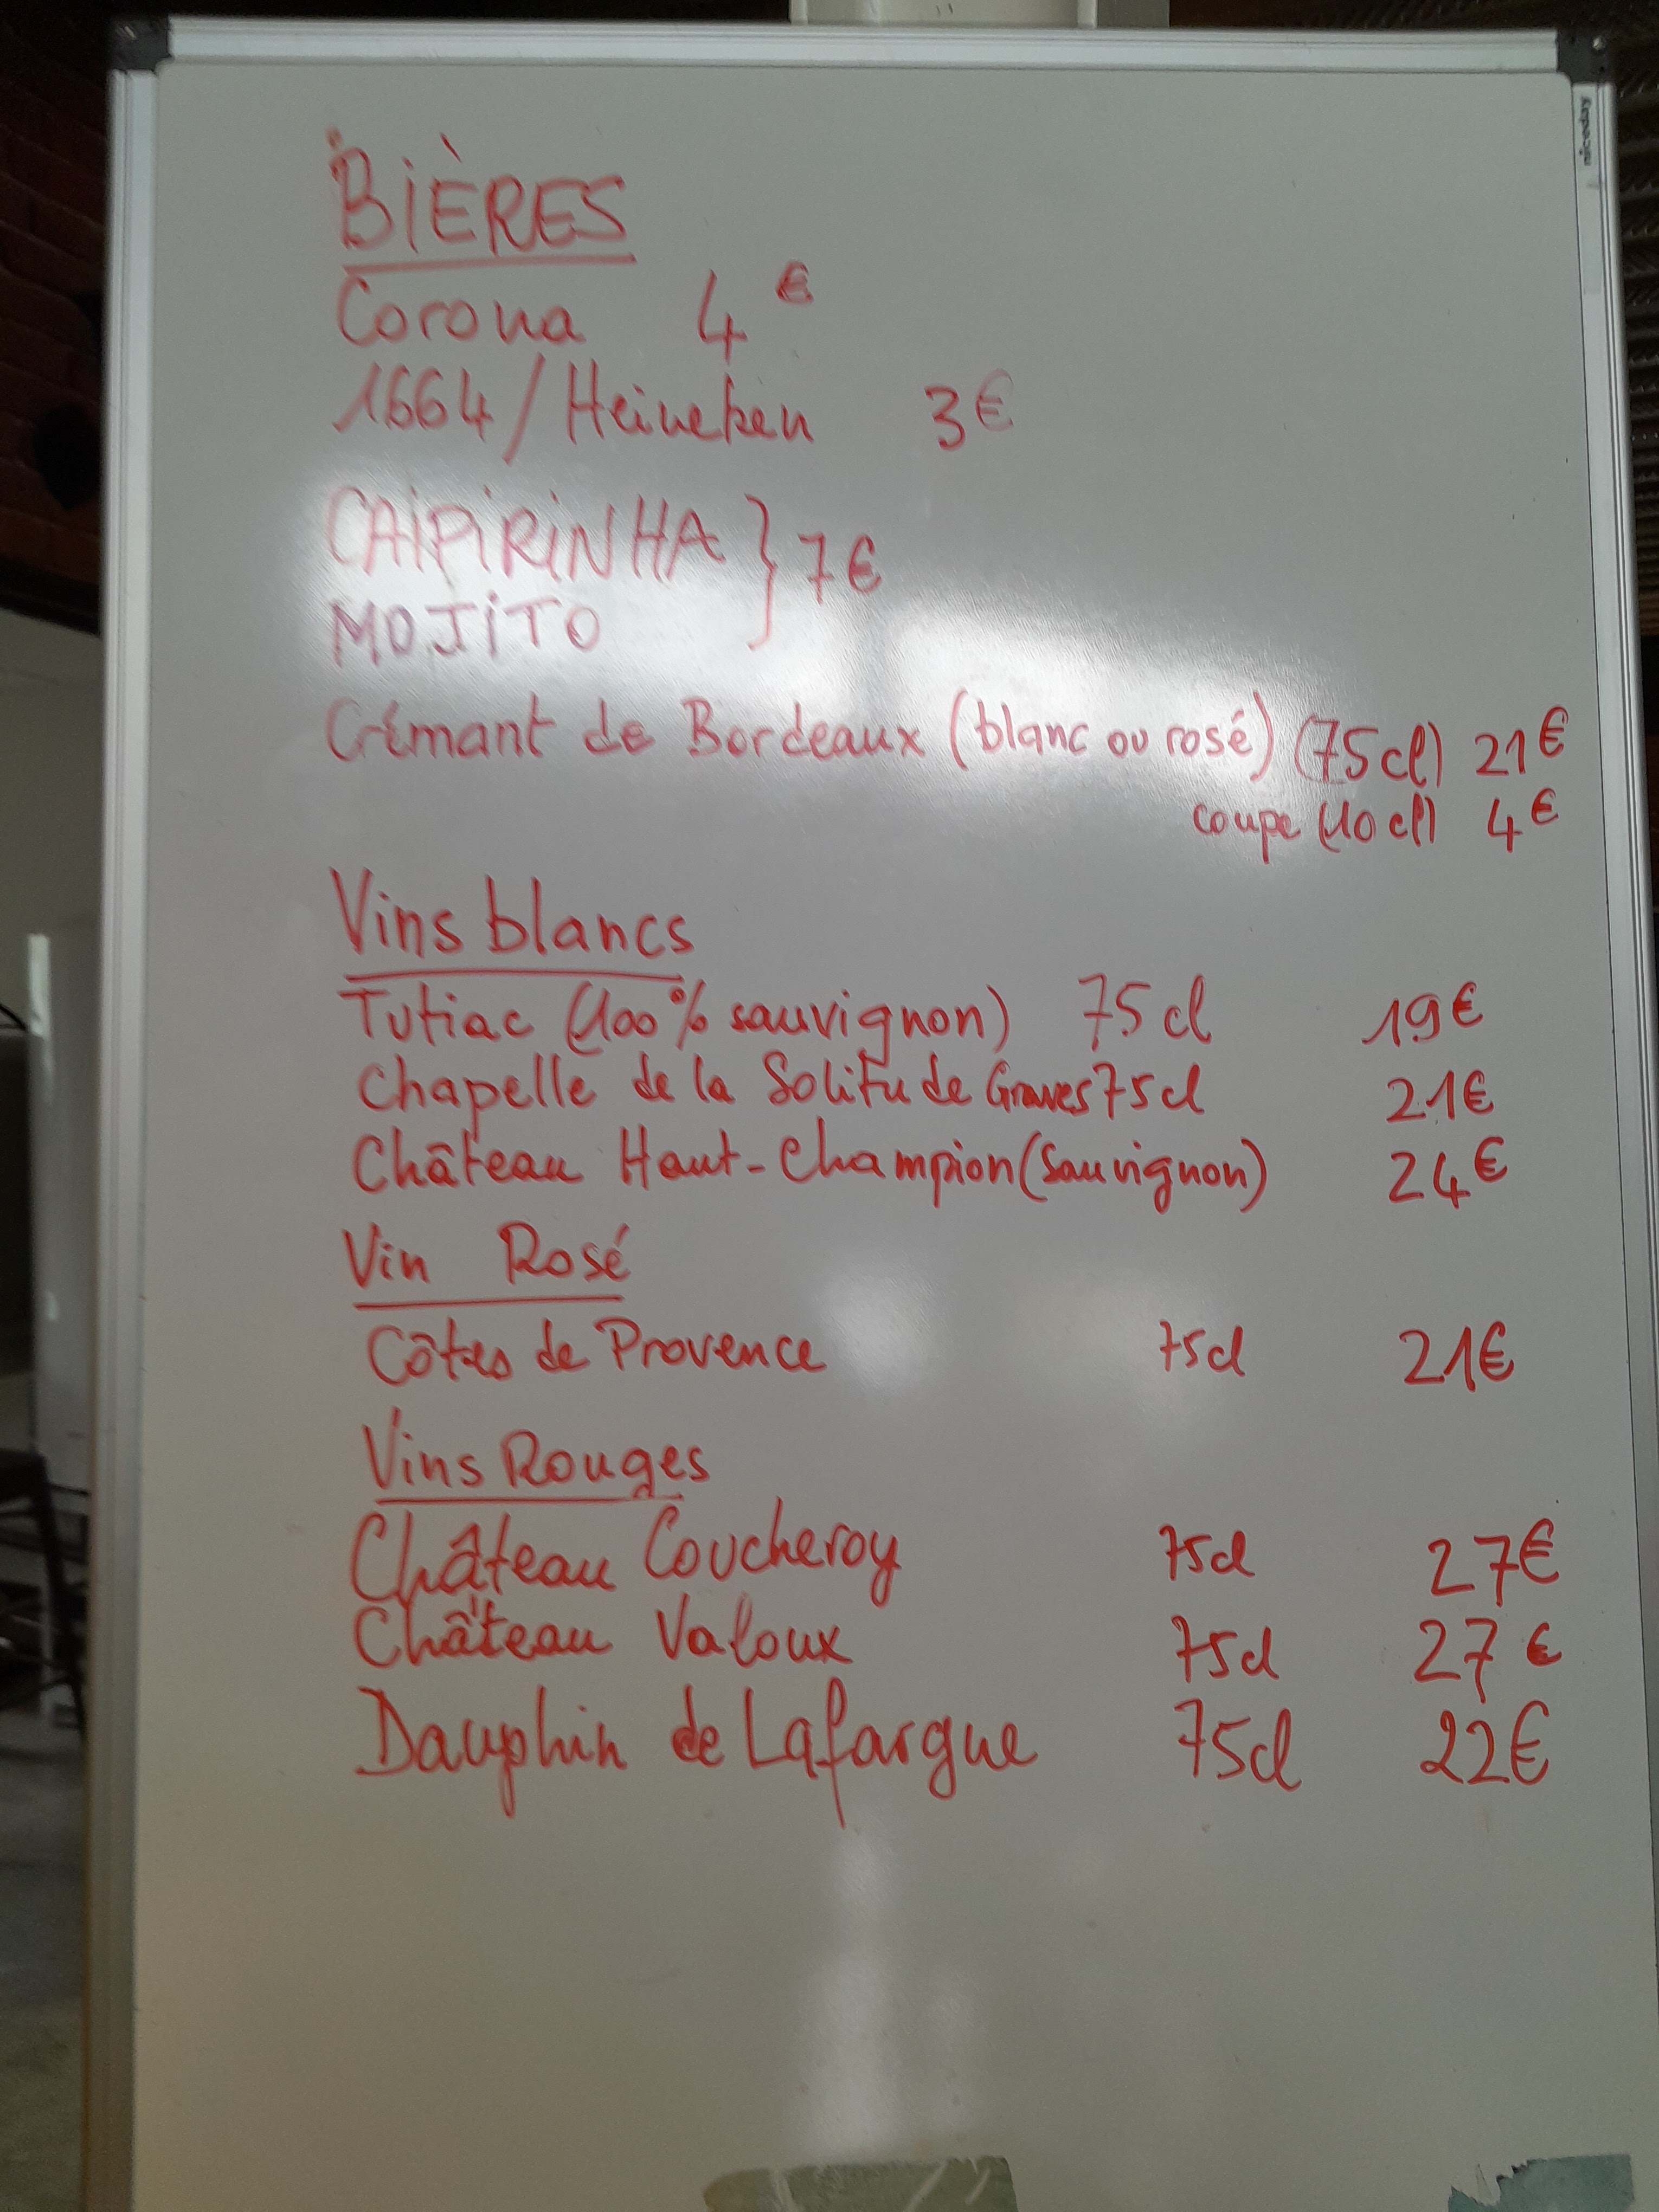 BIÈRES
Corona 4€
1664/Heineken 3€
CAIPIRINHA } 7€
MOJITO
Crémant de Bordeaux (blanc ou rosé) (75cl) 21€
coupe (10cl) 4€
Vins blancs
Tutiac (100% sauvignon) 75cl 19€
Chapelle de la Solitude Graves 75cl 21€
Château Haut-Champion (Sauvignon) 24€
Vin Rosé
Côtes de Provence 75cl 21€
Vins Rouges
Château Coucheroy 75cl 27€
Château Valoux 75cl 27€
Dauphin de Lafargue 75cl 22€
niceday